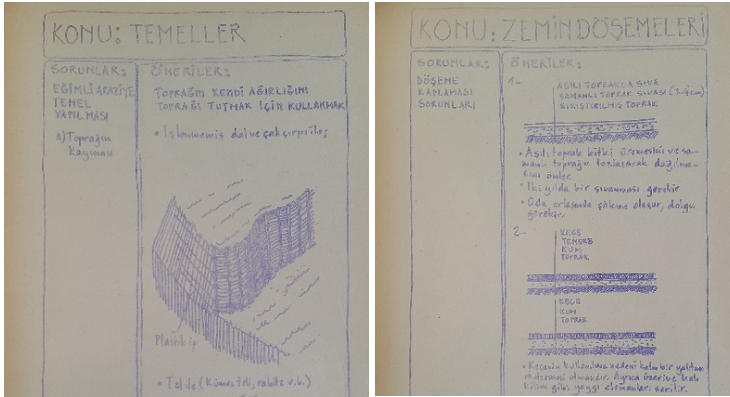 KONU: TEMELLER
SORUNLAR:
EĞİMLİ ARAZİYE
TEMEL
YAPILMASI
a) Toprağın
Kayması
ÖNERİLER:
TOPRAĞIN KENDİ AĞIRLIĞINI
TOPRAĞI TUTMAK İÇİN KULLANMAK
• İşlenmemiş dal ve çalı çırpı ile;
Plastik ip
• Telde (Kümes teli, rabitz v.b.)
KONU: ZEMİN DÖŞEMELERİ
SORUNLAR:
DÖŞEME
KAPLAMASI
SORUNLARI
ÖNERİLER:
1-
AŞILI TOPRAKLA SIVA
SAMANLI TOPRAK SIVASI
SIKIŞTIRILMIŞ TOPRAK
• Aşılı toprak bitki üremesini ve sa-
manlı toprağın tozlaşarak dağılma-
sını önler
• İki yılda bir sıvanması gerekir
• Oda ortasında çökme oluşur, dolgu
gerekir.
2-
KEÇE
KUM
TOPRAK
KEÇE
KUM
TOPRAK
• Keçenin kullanılma nedeni kalın bir yalıtım
malzemesi olmasıdır. Ayrıca üzerine halı
kilim gibi yaygı elemanlar serilir.